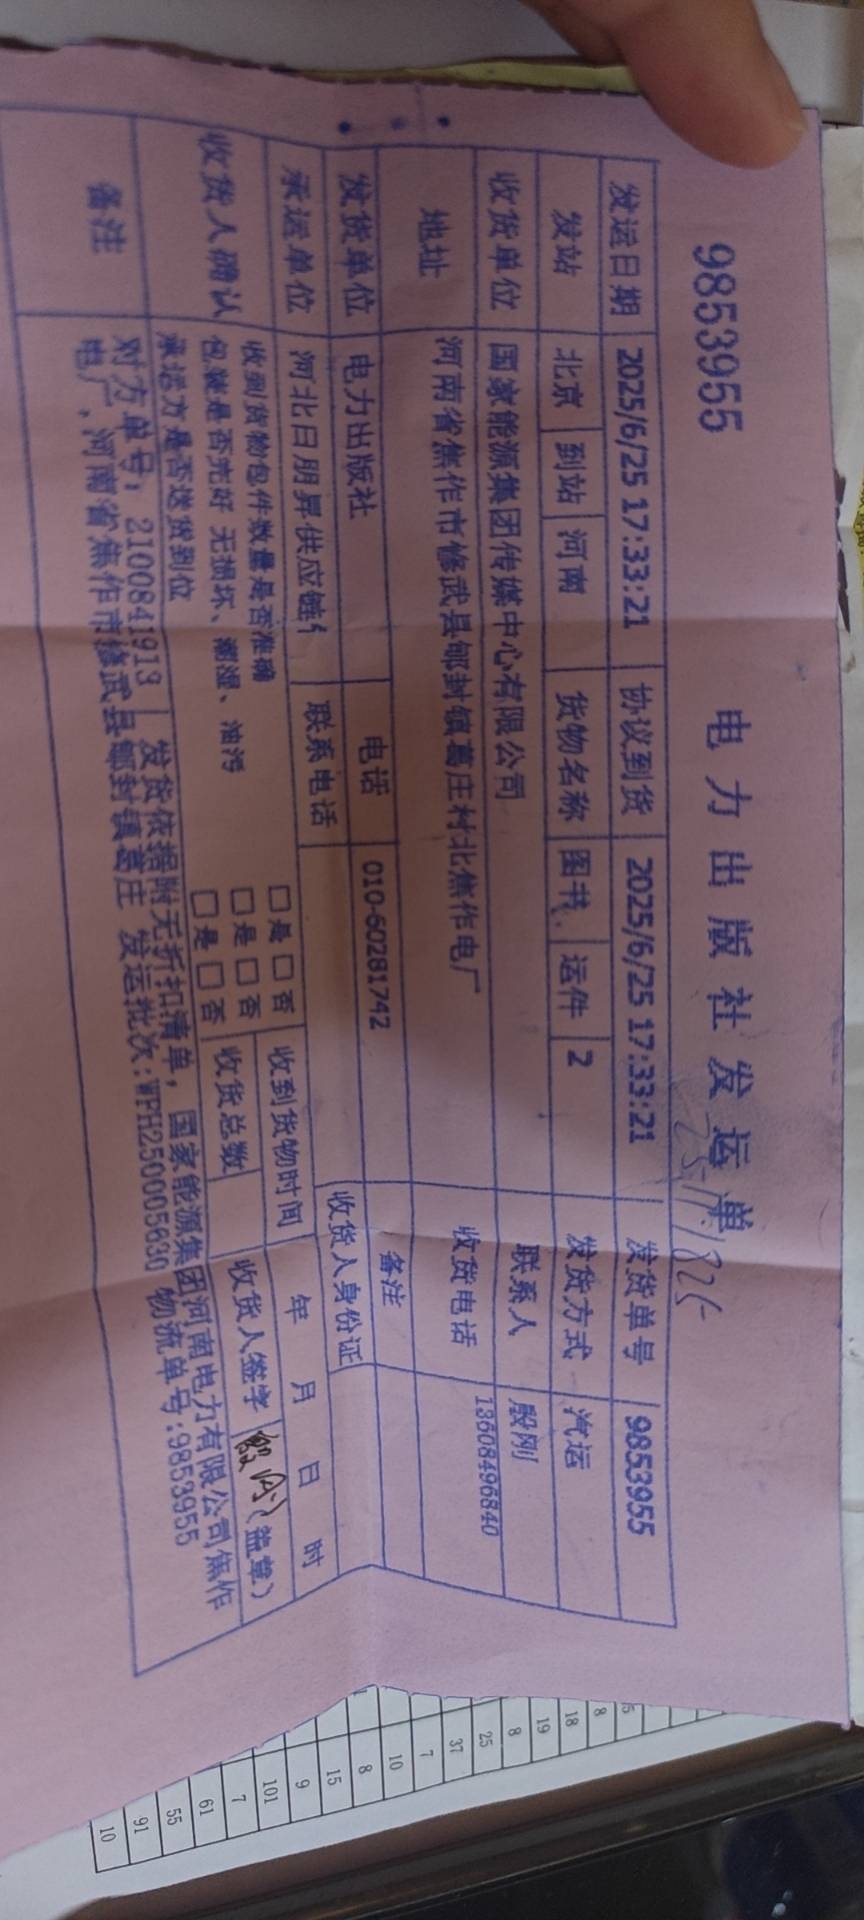 9853955
电力出版社发运单
发运日期 2025/6/25 17:33:21 协议到货 2025/6/25 17:33:21 发货单号 9853955
发站 北京 到站 河南 货物名称 图书、 运件 2 发货方式 汽运
收货单位 国家能源集团传媒中心有限公司 联系人 殷刚
地址 河南省焦作市修武县郇封镇葛庄村北焦作电厂 收货电话 13608496840
发货单位 电力出版社 电话 010-60281742 备注
承运单位 河北日朋昇供应链 联系电话 收货人身份证
收货人确认 收到货物包件数量是否准确 □是 □否 收到货物时间 年 月 日 时
包装是否完好 无损坏、潮湿、油污 □是 □否 收货总数 收货人签字 殷刚 (盖章)
承运方是否送货到位 □是 □否
备注 对方单号：2100841913 发货依据附无折扣清单，国家能源集团河南电力有限公司焦作
电厂，河南省焦作市修武县郇封镇葛庄 发运批次:WPH250005630 物流单号:9853955
8
18
19
8
25
37
7
10
8
15
9
101
7
61
55
91
10